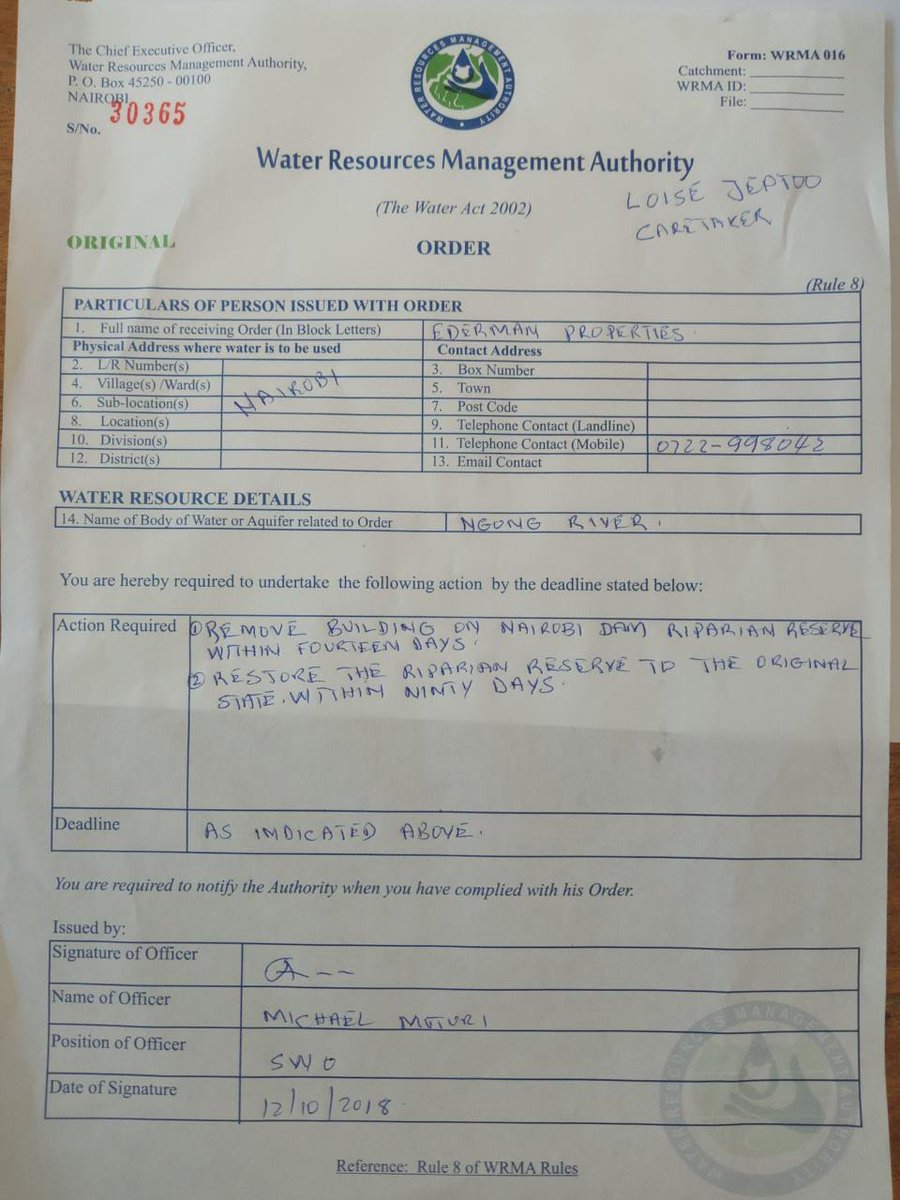 The Chief Executive Officer,
Water Resources Management Authority,
P. O. Box 45250 - 00100
NAIROBI
S/No. 30365
WATER RESOURCES MANAGEMENT AUTHORITY
Form: WRMA 016
Catchment:
WRMA ID:
File:
Water Resources Management Authority
(The Water Act 2002)
LOISE JEPTOO
CARETAKER
ORIGINAL
ORDER
(Rule 8)
PARTICULARS OF PERSON ISSUED WITH ORDER
1. Full name of receiving Order (In Block Letters) EDERMAN PROPERTIES.
Physical Address where water is to be used Contact Address
2. L/R Number(s) 3. Box Number
4. Village(s) /Ward(s) NAIROBI 5. Town
6. Sub-location(s) 7. Post Code
8. Location(s) 9. Telephone Contact (Landline)
10. Division(s) 11. Telephone Contact (Mobile) 0722-998042
12. District(s) 13. Email Contact
WATER RESOURCE DETAILS
14. Name of Body of Water or Aquifer related to Order NGONG RIVER.
You are hereby required to undertake the following action by the deadline stated below:
Action Required ① REMOVE BUILDING ON NAIROBI DAM RIPARIAN RESERVE
WITHIN FOURTEEN DAYS.
② RESTORE THE RIPARIAN RESERVE TO THE ORIGINAL
STATE. WITHIN NINTY DAYS.
Deadline AS INDICATED ABOVE.
You are required to notify the Authority when you have complied with his Order.
Issued by:
Signature of Officer
Name of Officer MICHAEL MOTURI
Position of Officer SWO
Date of Signature 12/10/2018.
WATER RESOURCES MANAGEMENT AUTHORITY
Reference: Rule 8 of WRMA Rules